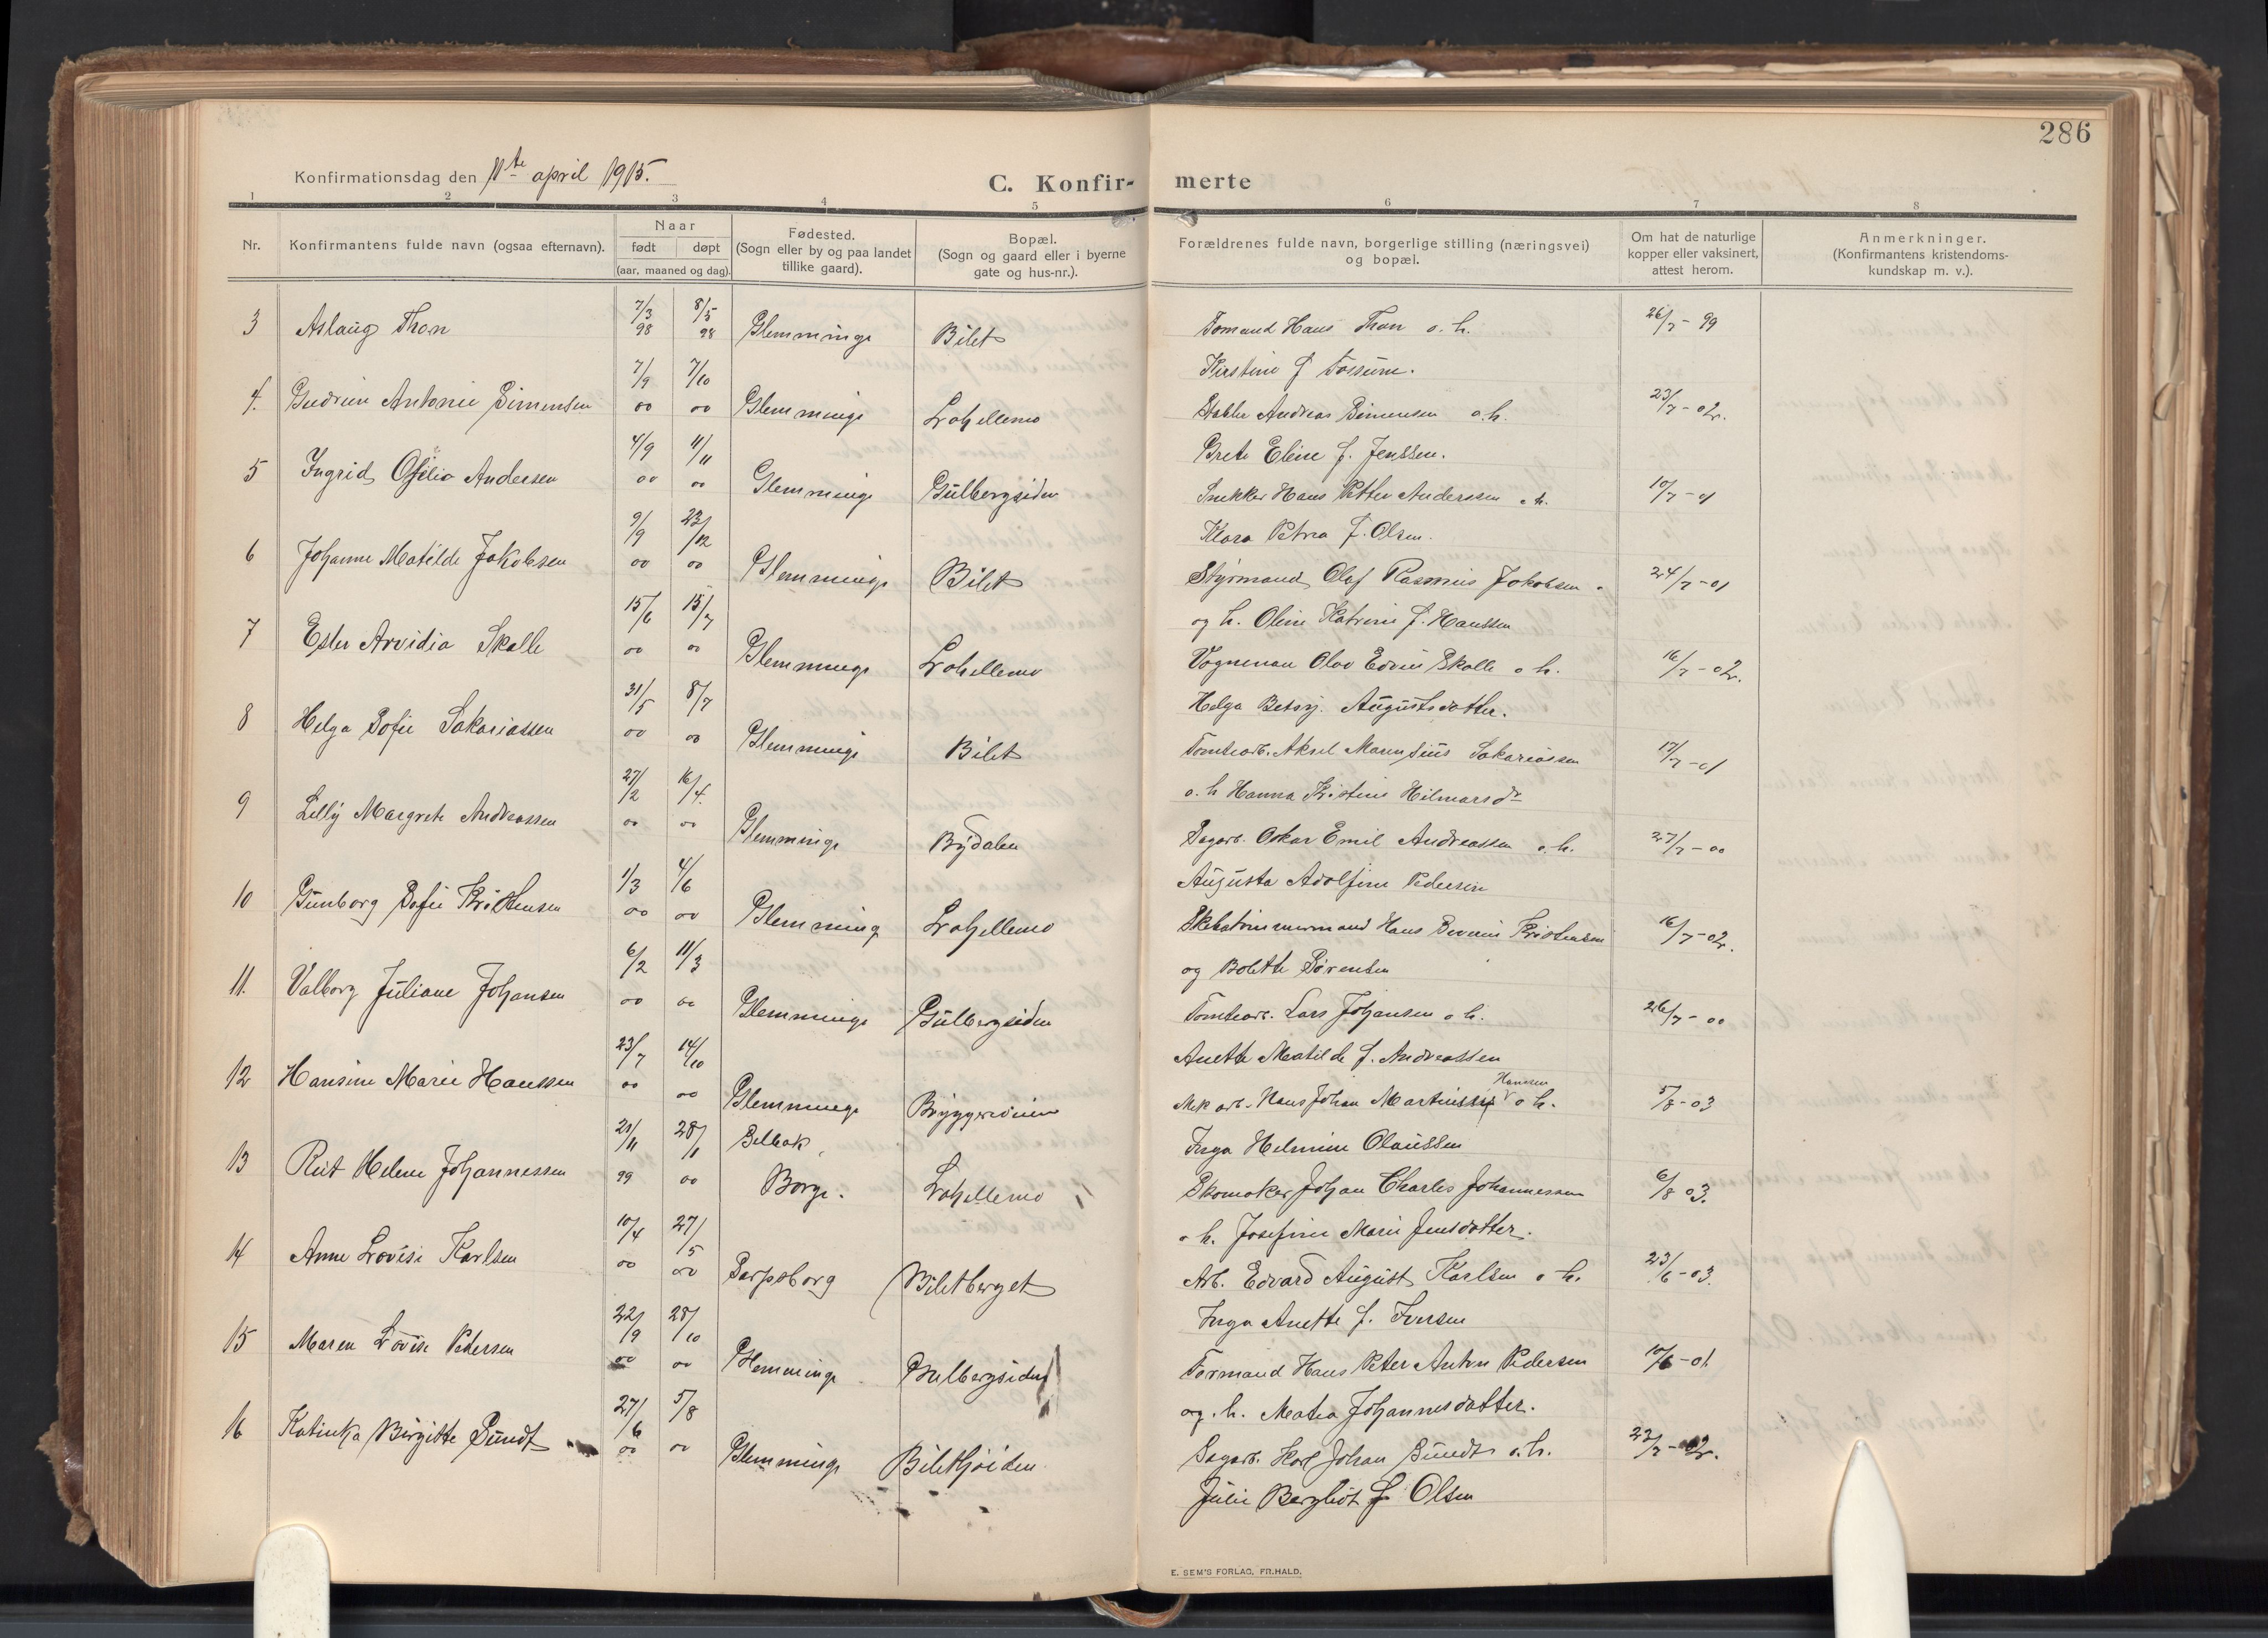 286
Konfirmationsdag den 11te april 1915.
C. Konfir- merte
1 2 3 4 5 6 7 8
Nr.
Konfirmantens fulde navn (ogsaa efternavn).
Naar
født døpt
(aar, maaned og dag).
Fødested.
(Sogn eller by og paa landet
tillike gaard).
Bopæl.
(Sogn og gaard eller i byerne
gate og hus-nr.).
Forældrenes fulde navn, borgerlige stilling (næringsvei)
og bopæl.
Om hat de naturlige
kopper eller vaksinert,
attest herom.
Anmerkninger.
(Konfirmantens kristendoms-
kundskap m. v.).
3 Aslaug Thon 7/3 98 8/5 98 Glemminge Bilet Formand Hans Thon o. h. 26/7 - 99
Kirstine f Fossum.
4. Gudrun Antonie Simensen 7/9 00 7/10 00 Glemminge Lahellemo Stabler Andreas Simensen o.h. 23/7 - 02.
Grete Eline f. Jenssen.
5 Ingrid Ofelia Andersen 4/9 00 11/11 00 Glemminge Gulbergsiden Snekker Hans Petter Anderssen o h. 10/7 - 01
Klara Petrea f. Olsen.
6 Johanne Matilde Jakobsen 9/9 00 23/12 00 Glemminge Bilet Styrmand Olaf Rasmus Jakobsen 24/7 - 01
og h. Oline Katrine f. Hanssen
7 Ester Arvidia Skolle 15/6 00 15/7 00 Glemminge Lahellemo Vognman Olav Edvin Skolle o h. 16/7 - 02.
Helga Betsy. Augustsdatter.
8 Helga Sofie Sakariassen 31/5 00 8/7 00 Glemminge Bilet Tomtearb. Aksel Marensius Sakariassen 17/7 - 01
o. h Hanna Kristine Hilmarsdr
9 Lilly Margrete Andreassen 27/2 00 16/4. 00 Glemminge Bydalen Sagarb. Oskar Emil Andreassen o. h. 27/7 - 00
Augusta Adolfine Pedersen
10 Gunborg Sofie Kristensen 1/3 00 4/6 00 Glemming Lahellemo Skibstømmermand Hans Severin Kristensen 16/7 - 02.
og Bolette Sørensen
11. Valborg Juliane Johansen 6/2 00 11/3 00 Glemminge Gulbergsiden Tomtearb. Lars Johansen o h. 26/7 - 00
Anette Matilde f. Andreassen
12 Hansine Marie Hanssen 23/7 00 14/10 00 Glemminge Bryggeriveien Mek arb. Hans Johan Martinssen Hanssen o h. 5/8 - 03
Inga Helmine Olaussen
13 Rut Helene Johannessen 21/11 99 28/1 00 Selbak, Borge. Lahellemo Skomaker Johan Charles Johannessen 6/8 03.
o h. Josefine Marie Jensdatter.
14 Anne Lovise Karlsen 10/4 00 27/5 00 Sarpsborg Biletberget Arb. Edvard August Karlsen o h. 23/6 - 03.
Inga Anette f. Iversen
15 Maren Lovise Pedersen 22/9 00 28/10 00 Glemminge Gulbergsiden Formand Hans Peter Anton Pedersen 10/6 - 01.
og. h. Matea Johannesdatter.
16 Katinka Birgitte Sundt 27/6 00 5/8 00 Glemminge Sagarb. Karl Johan Sundt o. h. 23/7 - 02.
Julie Bergliot f Olsen
E. SEM'S FORLAG, FR.HALD.